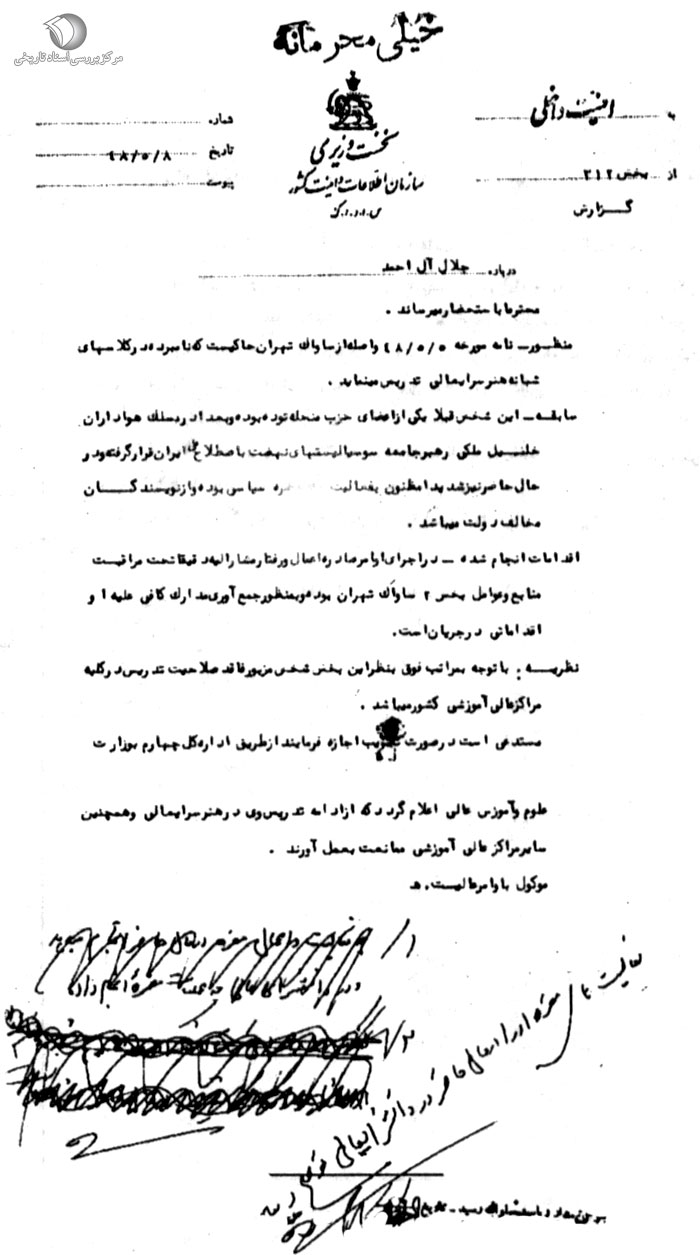 مرکز بررسی اسناد تاریخی
خیلی محرمانه
به امنیت داخلی
از بخش ۳۱۲
گزارش
نخست وزیری
سازمان اطلاعات و امنیت کشور
س.ا.و.ا.ک
شماره
تاریخ ۴۸/۵/۸
پیوست
درباره جلال آل احمد
محترما باستحضار میرساند .
منظور ــ نامه مورخه ۴۸/۵/۵ واصله از ساواک تهران حاکیست که نامبرده در کلاسهای
شبانه هنرسرایعالی تدریس مینماید .
سابقه ــ این شخص قبلا یکی از اعضای حزب منحله توده بوده و بعدا در مسلک هواداران
خلیل ملکی رهبر جامعه سوسیالیستهای نهضت باصطلاح ملی ایران قرار گرفته و در
حال حاضر نیز شدیدا مظنون بفعالیت مضره سیاسی بوده و از نویسندگان
مخالف دولت میباشد .
اقدامات انجام شده ــ در اجرای اوامر صادره اعمال و رفتار مشارالیه دقیقا تحت مراقبت
منابع و عوامل بخش ۲ ساواک تهران بوده و بمنظور جمع آوری مدارک کافی علیه او
اقداماتی در جریان است.
نظریه : با توجه بمراتب فوق بنظر این بخش شخص مزبور فاقد صلاحیت تدریس در کلیه
مراکز عالی آموزشی کشور میباشد .
مستدعی است در صورت تصویب اجازه فرمایند از طریق اداره کل چهارم بوزارت
علوم و آموزش عالی اعلام گردد که از ادامه تدریس وی در هنرسرایعالی و همچنین
سایر مراکز عالی آموزشی ممانعت بعمل آورند .
موکول باوامر عالیست. هـ
فعالیت های مضره او را در سال حاضر در دانشسرایعالی